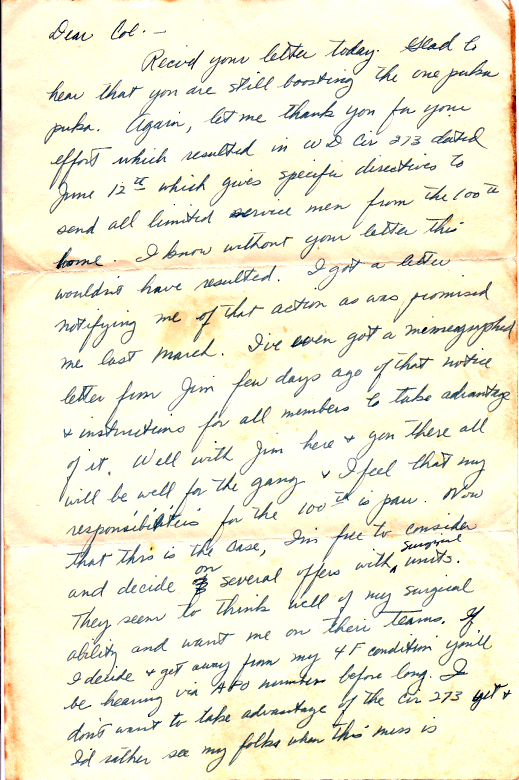 Dear Col. —
Recivd your letter today. Glad to
hear that you are still boosting the one puka
puka. Again, let me thank you for your
effort which resulted in WD Cir 273 dated
June 12th which gives specific directives to
send all limited service men from the 100th
home. I know without your letter this
wouldn't have resulted. I got a letter
notifying me of that action as was promised
me last March. I've even got a memeographed
letter from Jim few days ago of that notice
& instructions for all members to take advantage
of it. Well with Jim here & you there all
will be well for the gang & I feel that my
responsibilities for the 100th is pau. Now
that this is the case, I'm free to consider
and decide on several offers with surgical units.
They seem to think well of my surgical
ability and want me on their teams. If
I decide & get away from my 4F condition you'll
be hearing via APO number before long. I
don't want to take advantage of the Cir 273 yet &
I'd rather see my folks when this mess is